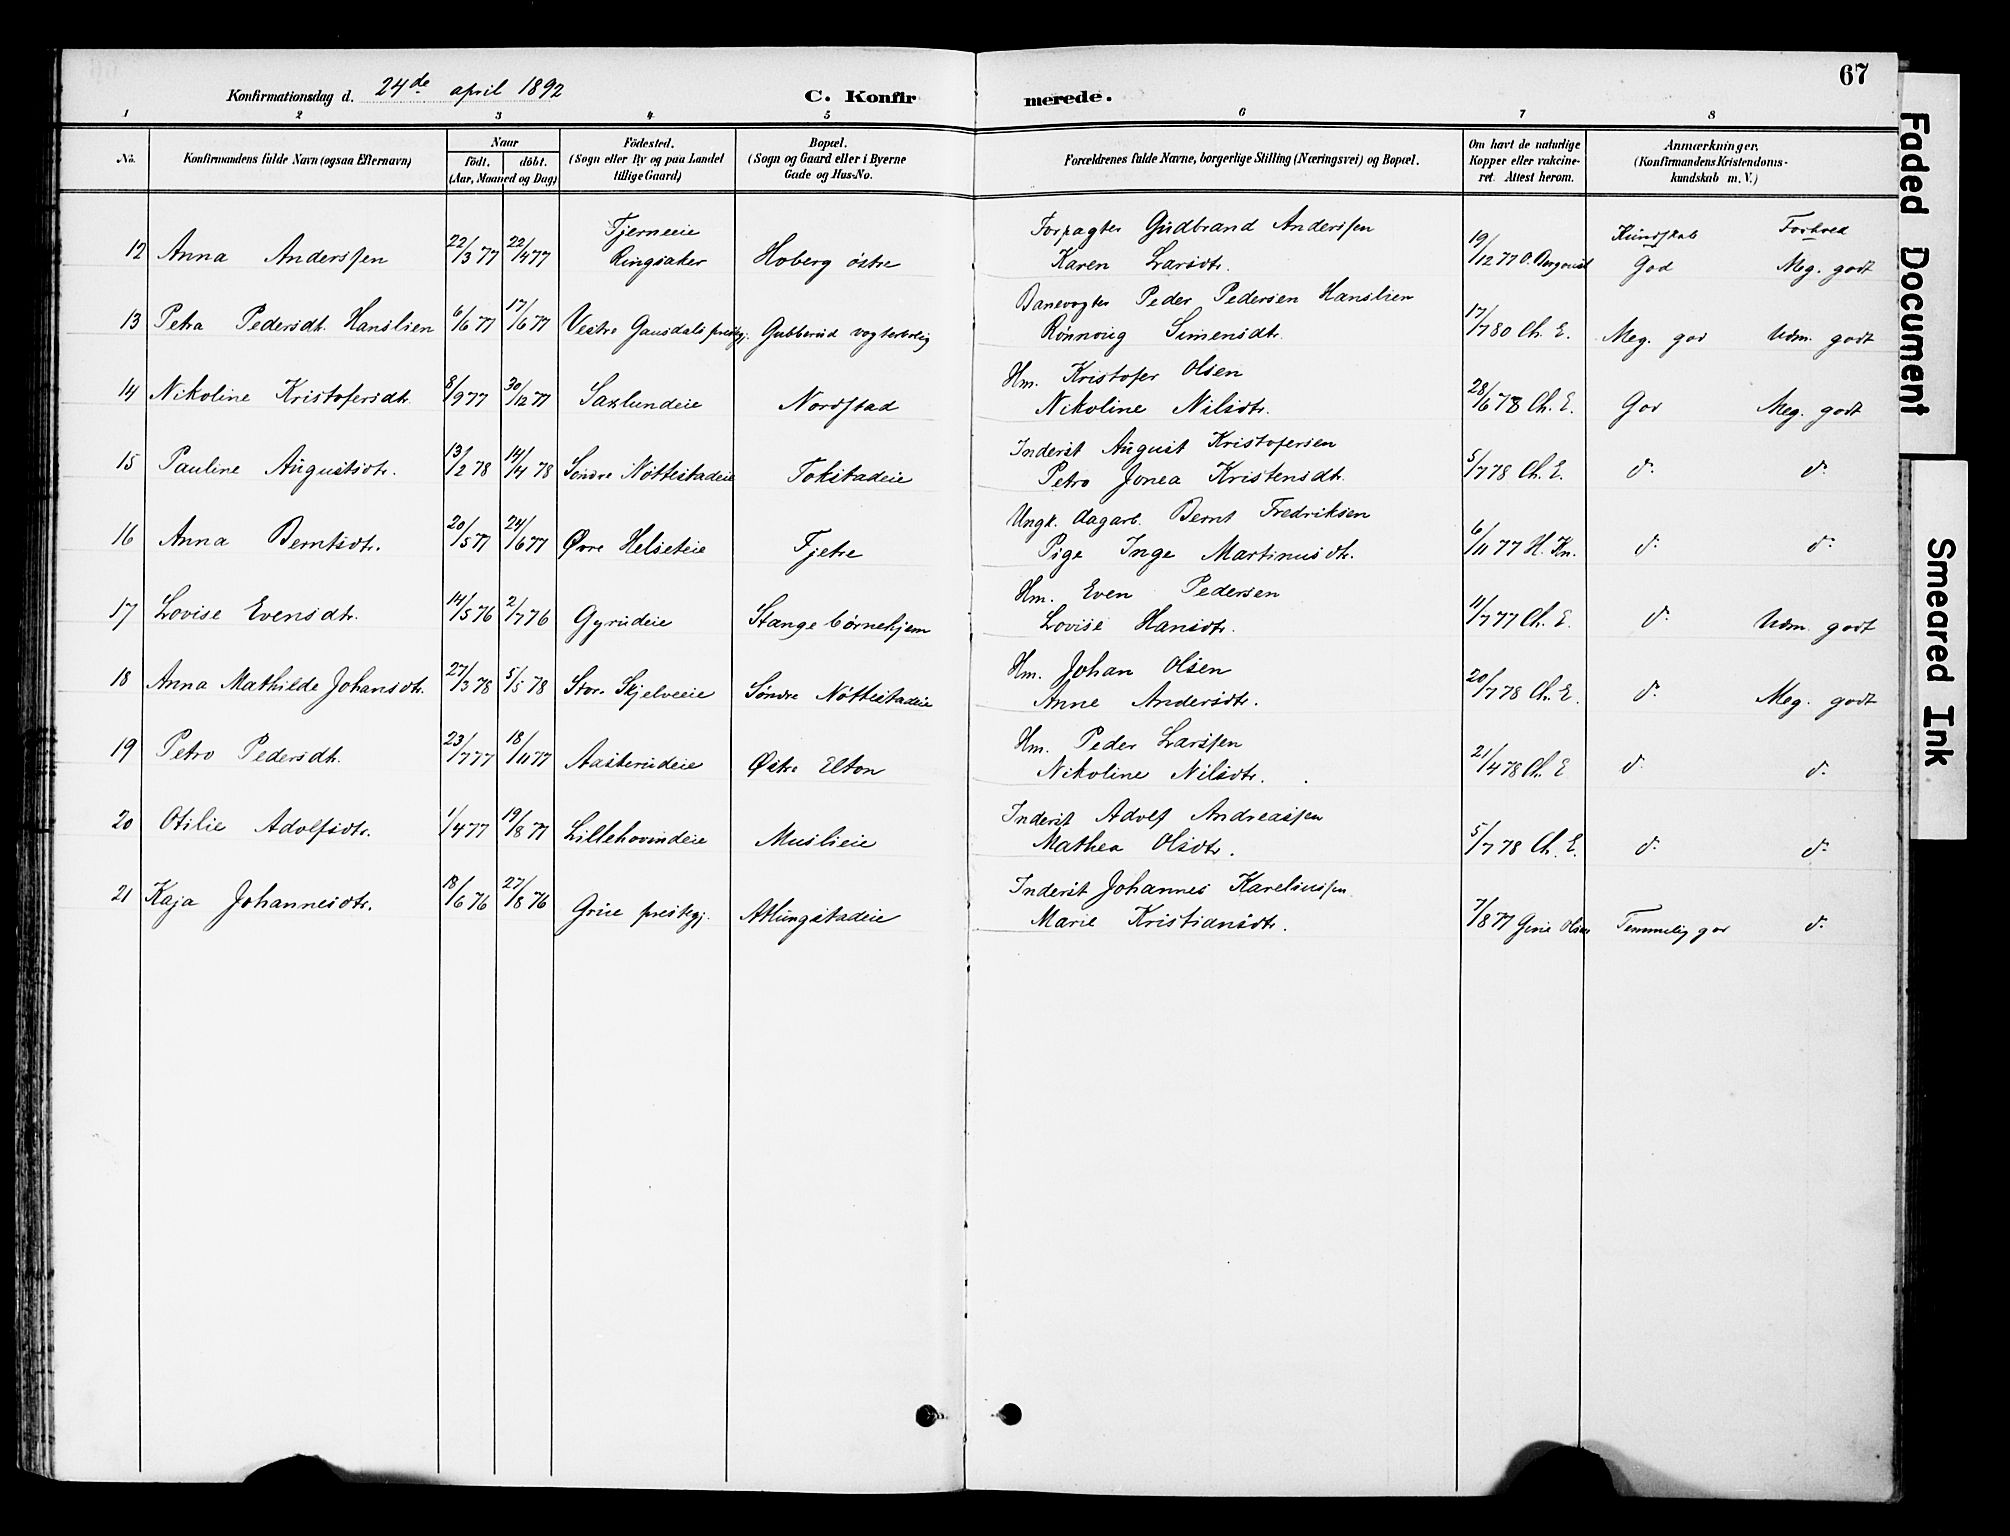 67
Konfirmationsdag d. 24de april 1892 C. Konfirmerede.
1 2 3 4 5 6 7 8
No. Konfirmandens fulde Navn (ogsaa Efternavn) Naar født. døbt. (Aar, Maaned og Dag) Fødested. (Sogn eller By og paa Landet tillige Gaard) Bopæl. (Sogn og Gaard eller i Byerne Gade og Hus-No. Forældrenes fulde Navne, borgerlige Stilling (Næringsvei) og Bopæl. Om havt de naturlige Kopper eller vakcineret. Attest herom. Anmærkninger. (Konfirmandens Kristendomskundskab m. V.)
Tjerneeie Forpagter Gudbrand Anderssen Kundskab Forhold
12 Anna Anderssen 22/3 77 22/4 77 Ringsaker Hoberg østre Karen Larsdtr. 19/12 77 God Meg. godt
Banevogter Peder Pedersen Hanslien
13 Petra Pedersdt. Hanslien 6/6 77 17/6 77 Vestre Gausdals prestegj. Gubberud vogterbolig Rønnoug Simensdtr. 17/7 80 Ch. E. Meg. god Udm. godt
Hm. Kristofer Olsen
14 Nikoline Kristofersdtr. 8/9 77 30/12 77 Saxlundeie Nordstad Nikoline Nilsdtr. 28/6 78 Ch. E. God Meg. godt
Inderst August Kristofersen
15 Pauline Augustsdtr. 13/2 78 14/4 78 Søndre Nøttestadeie Tokstadeie Petro Jonea Kristensdtr. 5/7 78 Ch. E. d. d.
Ungk. dagarb. Bernt Fredriksen
16 Anna Berntsdtr. 20/5 77 24/6 77 Øvre Helseteie Fjetre Pige Inge Martinusdtr. 6/11 77 H. Kn. d. d.
Hm. Even Pedersen
17 Lovise Evensdtr. 14/5 76 2/7 76 Gyrudeie Stange børnehjem Lovise Hansdtr. 11/7 77 Ch. E. d. Udm. godt
Hm. Johan Olsen
18 Anna Mathilde Johansdtr. 27/3 78 5/5 78 Store Skjelveeie Søndre Nøttestadeie Anne Andersdtr. 20/7 78 Ch. E. d. Meg. godt
Hm. Peder Larssen
19 Petro Pedersdtr. 23/7 77 18/11 77 Aasterudeie Østre Elton Nikoline Nilsdtr. 21/4 78 Ch. E d. d.
Inderst Adolf Andreassen
20 Otilie Adolfsdtr. 1/4 77 19/8 77 Lillehovindeie Muslieie Mathea Olsdtr. 5/7 78 Ch. E. d. d.
Inderst Johannes Kareliussen
21 Kaja Johannesdtr. 18/6 76 27/8 76 Grue prestegj. Atlungstadeie Marie Kristiansdtr. 7/8 77 Temmelig god d.
Faded Document
Smeared Ink